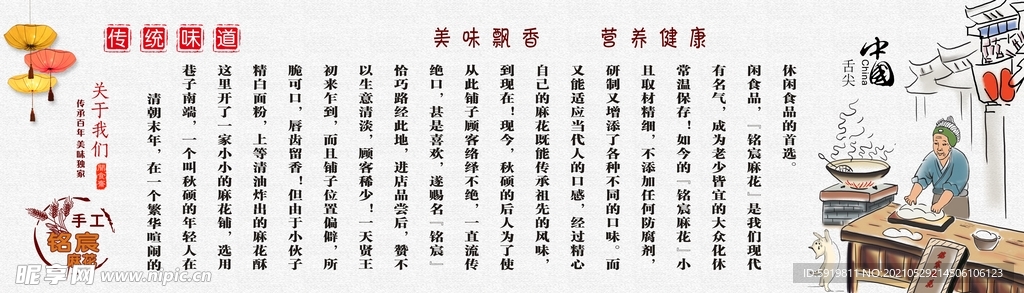 传统味道
美味飘香 营养健康
关于我们
传承百年 美味独家
手工
铭宸
麻花
清朝末年，在一个繁华喧闹的
巷子南端，一个叫秋硕的年轻人在
这里开了一家小小的麻花铺，选用
精白面粉，上等清油炸出的麻花酥
脆可口，唇齿留香！但由于小伙子
初来乍到，而且铺子位置偏僻，所
以生意清淡，顾客稀少！一天贤王
恰巧路经此地，进店品尝后，赞不
绝口，甚是喜欢，遂赐名『铭宸』
从此铺子顾客络绎不绝，一直流传
到现在！现今，秋硕的后人为了使
自己的麻花既能传承祖先的风味，
又能适应当代人的口感，经过精心
研制又增添了各种不同的口味。而
且取材精细，不添加任何防腐剂，
常温保存！如今的『铭宸麻花』小
有名气，成为老少皆宜的大众化休
闲食品，『铭宸麻花』是我们现代
休闲食品的首选。
舌尖
China
中国
铭宸麻花
昵享网 www.nipic.cn
ID:5919811 NO:20210529214506106123